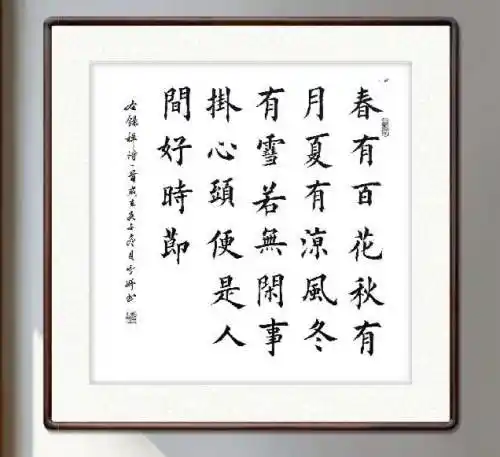 春有百花秋有
月夏有涼風冬
有雪若無閑事
掛心頭便是人
間好時節
右錄禪詩一首